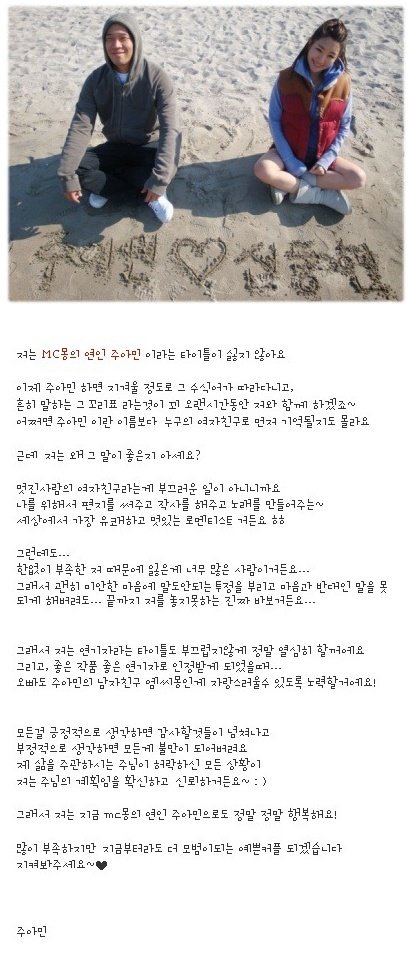 주아민 ♡ 신동현
저는 MC몽의 연인 주아민 이라는 타이틀이 싫지 않아요
이제 주아민 하면 지겨울 정도로 그 수식어가 따라다니고,
흔히 말하는 그 꼬리표 라는것이 꾀 오랜시간동안 저와 함께 하겠죠~
어쩌면 주아민 이란 이름보다 누구의 여자친구로 먼저 기억될지도 몰라요
근데 저는 왜 그 말이 좋은지 아세요?
멋진사람의 여자친구라는게 부끄러운 일이 아니니까요
나를 위해서 편지를 써주고 작사를 해주고 노래를 만들어주는~
세상에서 가장 유쾌하고 멋있는 로맨티스트 거든요 ㅎㅎ
그런데도...
한없이 부족한 저 때문에 잃은게 너무 많은 사람이거든요...
그래서 괜히 미안한 마음에 말도안되는 투정을 부리고 마음과 반대인 말을 못
되게 해버려도... 끝까지 저를 놓지못하는 진짜 바보거든요...
그래서 저는 연기자라는 타이틀도 부끄럽지않게 정말 열심히 할꺼에요
그리고, 좋은 작품 좋은 연기자로 인정받게 되었을때...
오빠도 주아민의 남자친구 엠씨몽인게 자랑스러울수 있도록 노력할거에요!
모든걸 긍정적으로 생각하면 감사할것들이 넘쳐나고
부정적으로 생각하면 모든게 불만이 되어버려요
제 삶을 주관하시는 주님이 허락하신 모든 상황이
저는 주님의 계획임을 확신하고 신뢰하거든요~ : )
그래서 저는 지금 mc몽의 연인 주아민으로도 정말 정말 행복해요!
많이 부족하지만 지금부터라도 더 모범이되는 예쁜커플 되겠습니다
지켜봐주세요~♥
주아민